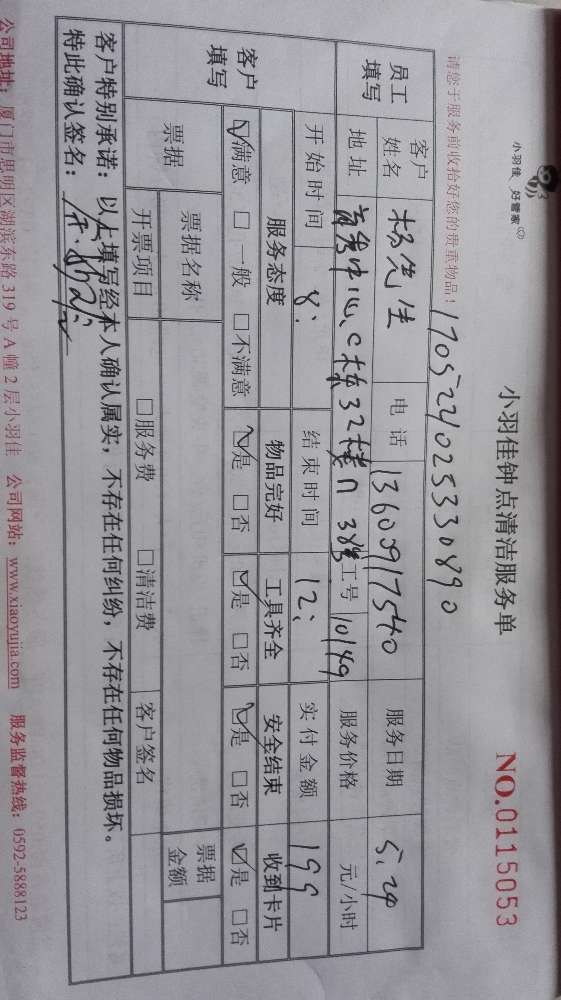 小羽佳 好管家
小羽佳钟点清洁服务单
NO.0115053
请您于服务前收拾好您的贵重物品！
1705224025330890
员工填写
客户姓名 杨先生 电话 1360917540 服务日期 5.24
地址 中心C栋32楼 38 工号 10149 服务价格 元/小时
客户填写
开始时间 8: 结束时间 12: 实付金额 199
服务态度 物品完好 工具齐全 安全结束 收到卡片
☑满意 □一般 □不满意 ☑是 □否 ☑是 □否 ☑是 □否 ☑是 □否
票据 票据名称 票据金额
开票项目 □服务费 □清洁费 客户签名
客户特别承诺：以上填写经本人确认属实，不存在任何纠纷，不存在任何物品损坏。
特此确认签名：
公司地址：厦门市思明区湖滨东路319号A幢2层小羽佳 公司网站：www.xiaoyujia.com 服务监督热线：0592-5888123